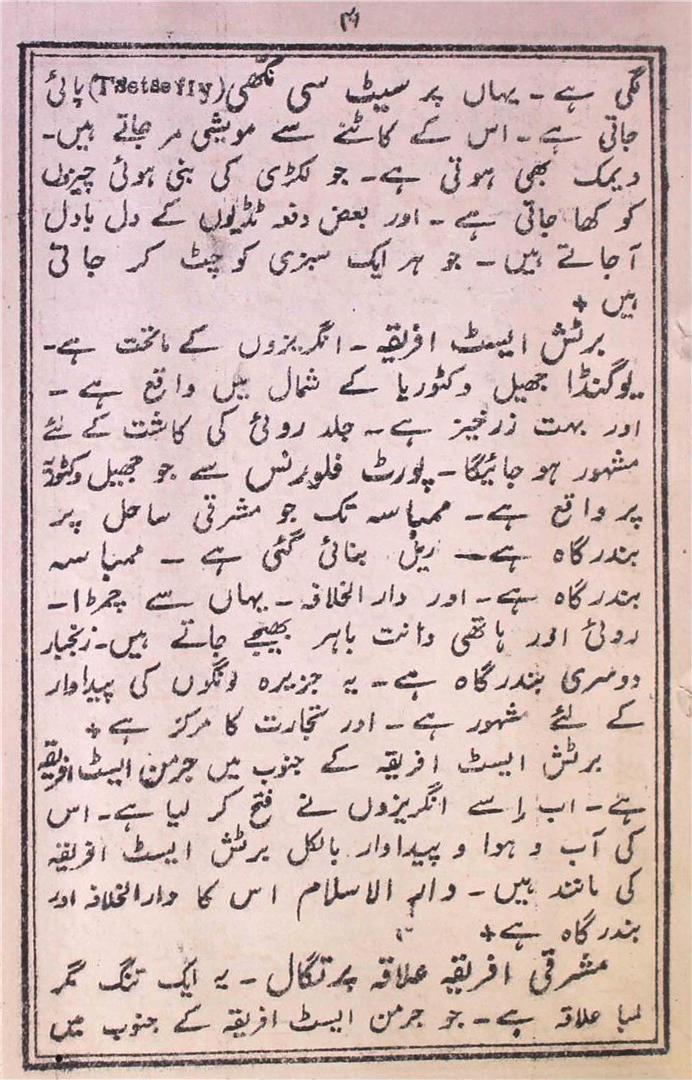 ۳۱
گی ہے ۔ یہاں پر سیٹ سی مکھی (Tsetsefly) پائی
جاتی ہے ۔ اس کے کاٹنے سے مویشی مر جاتے ہیں ۔
دیمک بھی ہوتی ہے ۔ جو لکڑی کی بنی ہوئی چیزوں
کو کھا جاتی ہے ۔ اور بعض دفعہ ٹڈیوں کے دل بادل
آ جاتے ہیں ۔ جو ہر ایک سبزی کو چٹ کر جاتی
ہیں +
برٹش ایسٹ افریقہ ۔ انگریزوں کے ماتحت ہے ۔
یوگنڈا جھیل وکٹوریا کے شمال میں واقع ہے ۔
اور بہت زرخیز ہے ۔ جلد روئی کی کاشت کے لئے
مشہور ہو جائیگا ۔ پورٹ فلورنس سے جو جھیل وکٹوریہ
پر واقع ہے ۔ ممباسہ تک جو مشرقی ساحل پر
بندرگاہ ہے ۔ ریل بنائی گئی ہے ۔ ممباسہ
بندرگاہ ہے ۔ اور دارالخلافہ ۔ یہاں سے چمڑا ۔
روئی اور ہاتھی دانت باہر بھیجے جاتے ہیں ۔ زنجبار
دوسری بندرگاہ ہے ۔ یہ جزیرہ لونگوں کی پیداوار
کے لئے مشہور ہے ۔ اور تجارت کا مرکز ہے +
برٹش ایسٹ افریقہ کے جنوب میں جرمن ایسٹ افریقہ
ہے ۔ اب اسے انگریزوں نے فتح کر لیا ہے ۔ اس
کی آب و ہوا و پیداوار بالکل برٹش ایسٹ افریقہ
کی مانند ہیں ۔ دار الاسلام اس کا دارالخلافہ اور
بندرگاہ ہے +
مشرقی افریقہ علاقہ پرتگال ۔ یہ ایک تنگ مگر
لمبا علاقہ ہے ۔ جو جرمن ایسٹ افریقہ کے جنوب میں